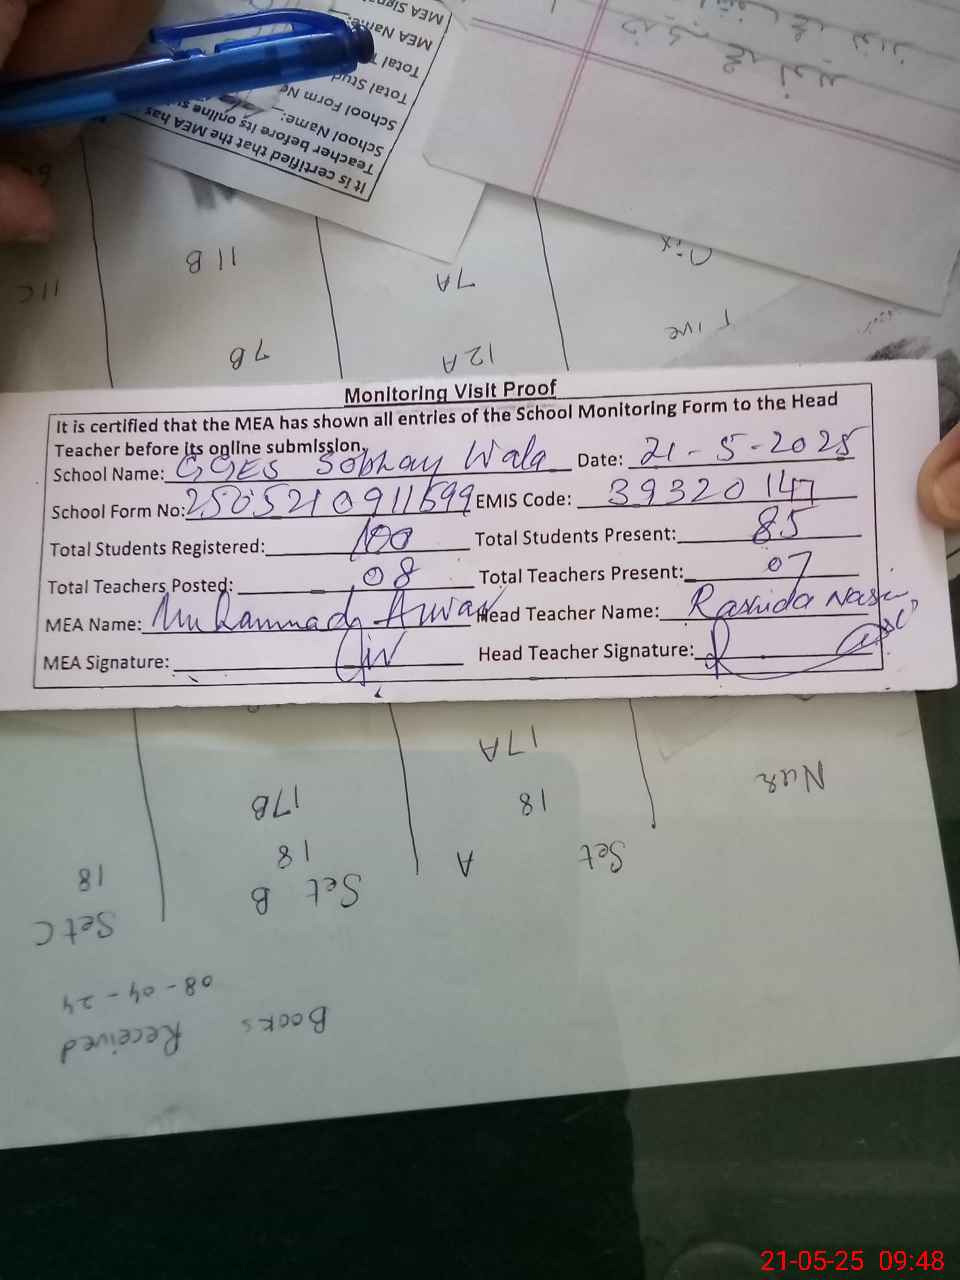 MEA Signa
MEA Name:
Total T
Total Stud
School Form No
School Name:
Teacher before its online su
It is certified that the MEA has
Six
11C 11B 7A
Five
7B 12A
Monitoring Visit Proof
It is certified that the MEA has shown all entries of the School Monitoring Form to the Head
Teacher before its online submission.
School Name: GGES Sobhay Wala Date: 21-5-2025
School Form No: 2505210911599 EMIS Code: 39320147
Total Students Registered: 100 Total Students Present: 85
Total Teachers Posted: 08 Total Teachers Present: 07
MEA Name: Muhammad Anwar Head Teacher Name: Rashida
MEA Signature: Head Teacher Signature:
17A
Nur
17B 18
18 Set A
18 Set B
Set C
08-04-24
Books Received
21-05-25 09:48